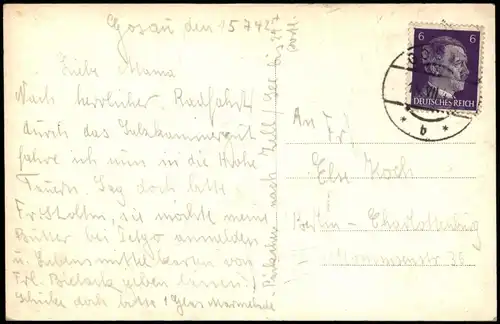 Gosau den 15 7 42
Liebe Mama
Nach herrlicher Radfahrt
durch das Salzkammergut
fahre ich nun in die Hohe
Tauern. Sag doch bitte
Frl. sie möchte meine
Butter bei anmelden
u. Lebensmittelkarten von
Frl. geben lassen!
Schicke doch bitte 1 Glas Marmelade
nach Zell/See bis
An Fr.
Else Koch
Berlin - Charlottenburg
Mommsenstr. 35
6 6
DEUTSCHES REICH
* b *